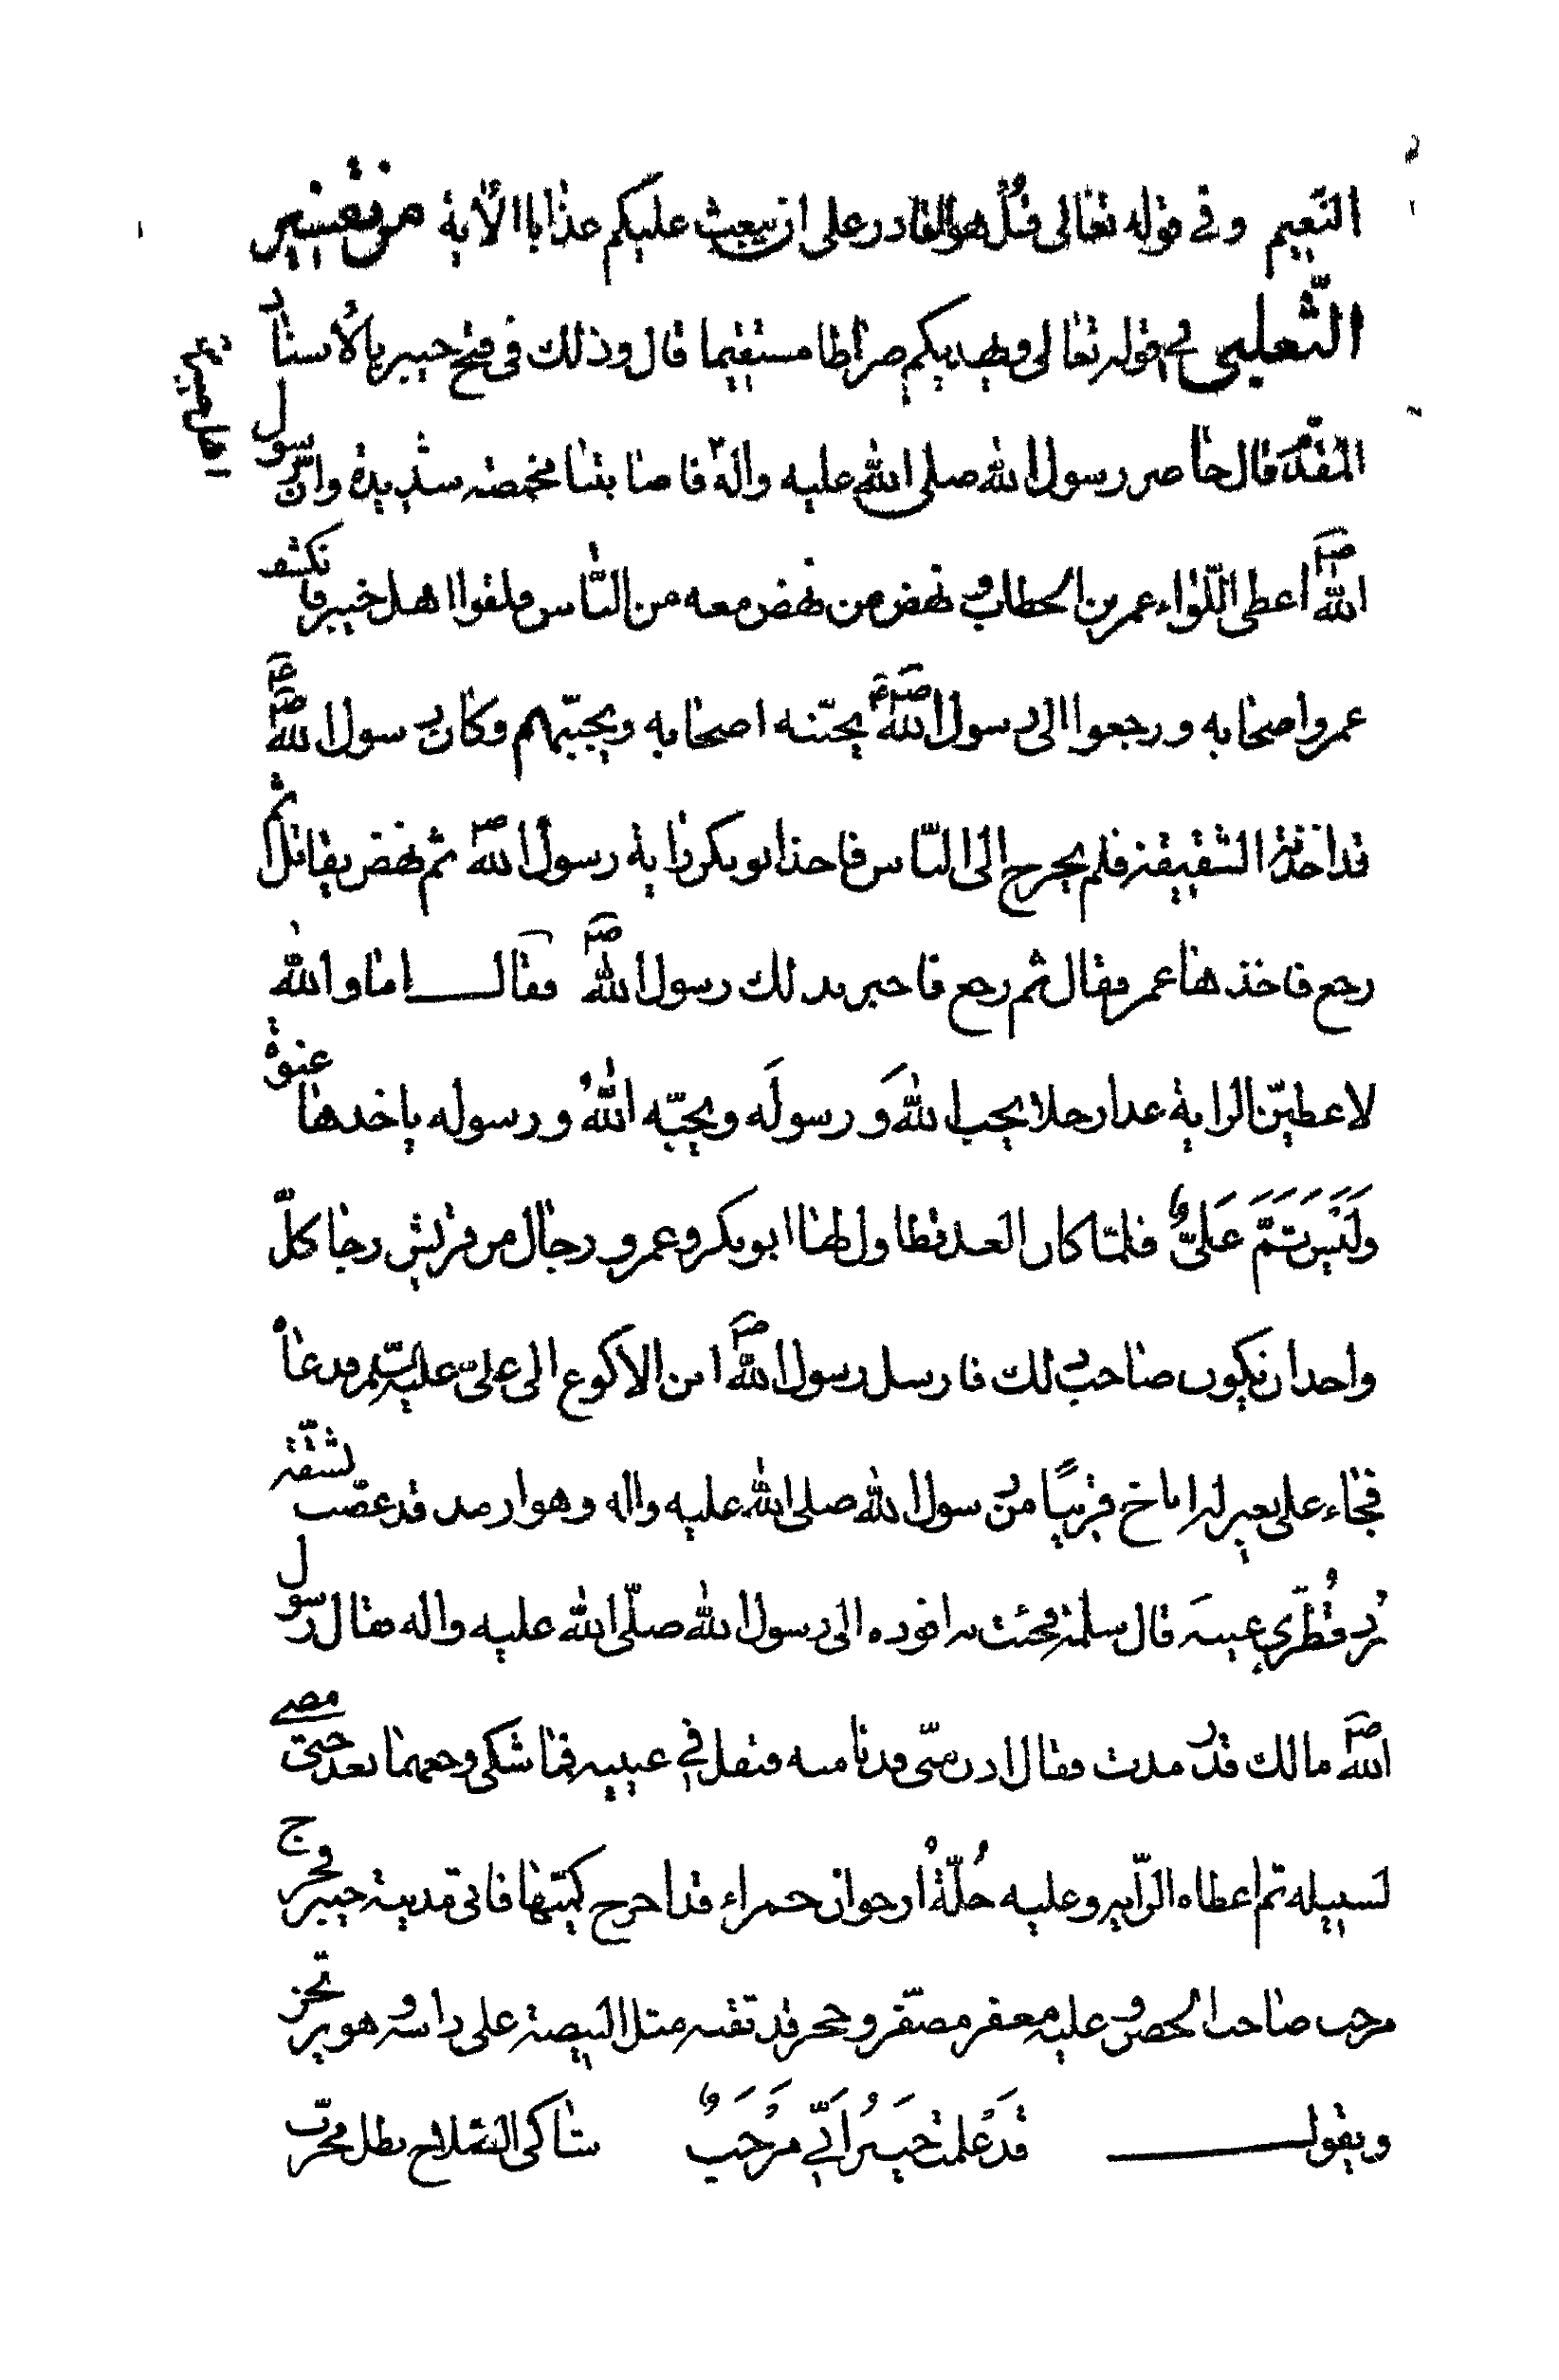 النعيم وفي قوله تعالى قُلْ هو القادر على ان يبعث عليكم عذابا الأية من تفسير
الثّعلبي في قوله تعالى ويهديكم صراطا مستقيما قال وذلك في فتح خيبر بالأسناد
المقدّم قال حاصر رسول الله صلى الله عليه واله فاصابتنا مخمصة شديدة وانّ رسول
اللهص اعطى اللّواء عمر بن الخطاب ونهض من نهض معه من النّاس فلقوا اهل خيبر فانكشف
عمر واصحابه ورجعوا الى رسول اللهص يجبّنه اصحابه ويجبّنهم وكان رسول اللهص
قد اخذته الشقيقة فلم يخرج الى النّاس فاخذ ابو بكر راية رسول اللهص ثم نهض يقاتل ثم
رجع فاخذها عمر فقاتل ثم رجع فاخبر بذلك رسول اللهص فقال اما والله
لاعطينّ الراية غدا رجلا يحب اللهَ ورسولَه ويحبّه اللهُ ورسوله ياخذها عنوة
وَلَيْسَ ثَمَّ عَلِيٌّ فلمّا كان الغد تطاول لها ابو بكر وعمر ورجال من قريش رجا كلّ
واحد ان يكون صاحب ذلك فارسل رسول اللهص ابن الاكوع الى عليّ عليه السّلم فدعاه
فجاء على بعير له اناخ قريبًا من رسول الله صلى الله عليه واله وهو ارمد قد عصب بشقّة
بُرد قُطري عينيه قال سلمة فجئت به اقوده الى رسول الله صلّى الله عليه واله فقال رسول
اللهص مالك قد رمدت فقال ادن منّى فدنا منه فتفل في عينيه فما شكى وجعهما بعد حتى مضى
لسبيله ثم اعطاه الرّاية وعليه حُلّةُ ارجوان حمراء قد اخرج كميّها فاتى مدينة خيبر فخرج
مرحب صاحب الحصن وعليه مغفر مصفّر وحجر قد ثقبه مثل البيضة على راسه وهو يرتجز
ويقول قَد عَلمت خيبرُ انّي مَرْحَبٌ شاكى السّلاح بطل مجرّب